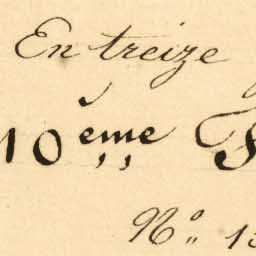 En treize
10ème
No. 13